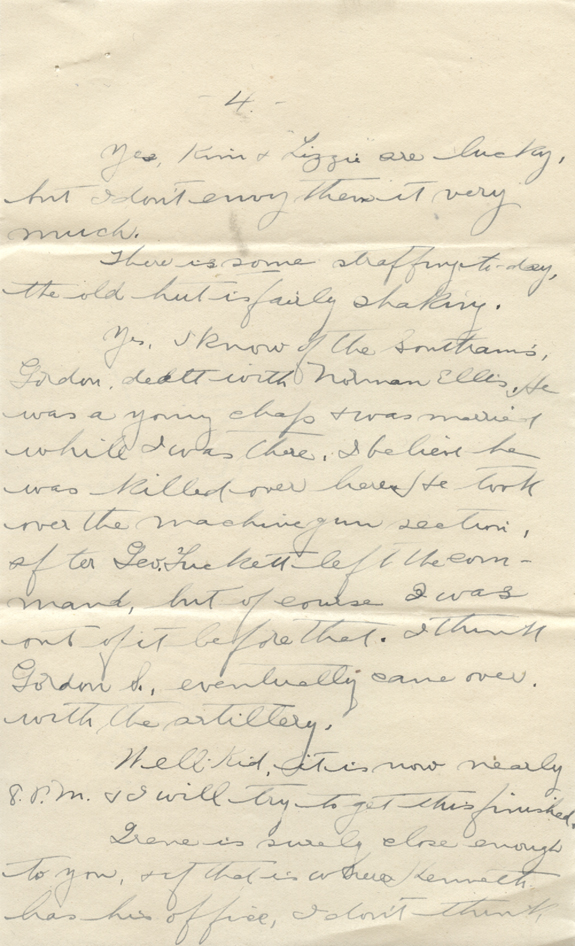 - 4. -
Yes, Kim & Lizzie are lucky,
but I don't envy them it very
much.
There is some straffing to-day,
the old hut is fairly shaking.
Yes, I know of the Southam's,
Gordon, dealt with Norman Ellis, He
was a young chap & was married
while I was there, I believe he
was killed over here, He took
over the machine gun section,
after Geo. Tuckett left the com-
mand, but of course I was
out of it before that. I think
Gordon S., eventually came over.
with the artillery.
Well Kid, it is now nearly
8.P.M. & I will try to get this finished.
Irene is surely close enough
to you, & if that is where Kenneth
has his office, I don't think